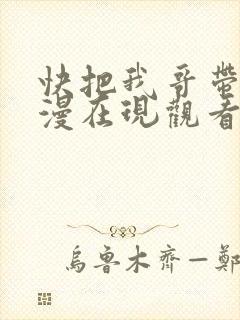 快把我哥帶
漫在現觀看
烏魯木齊—鄭